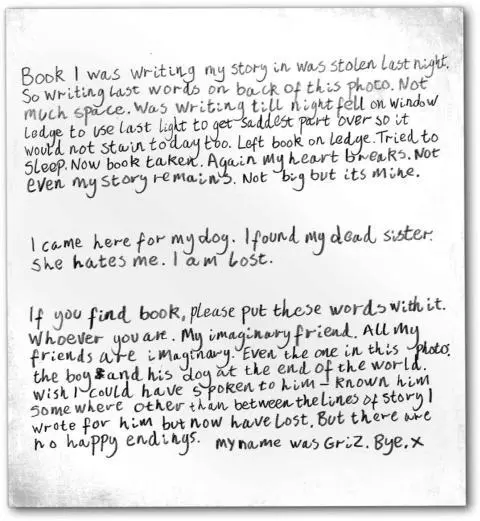 Book I was writing my story in was stolen last night.
So writing last words on back of this photo. Not
much space. Was writing till night fell on window
ledge to use last light to get saddest part over so it
would not stain today too. Left book on ledge. Tried to
sleep. Now book taken. Again my heart breaks. Not
even my story remains. Not big but its mine.
I came here for my dog. I found my dead sister.
She hates me. I am lost.
If you find book, please put these words with it.
Whoever you are. My imaginary friend. All my
friends are imaginary. Even the one in this photo.
the boy and his dog at the end of the world.
wish I could have spoken to him – known him
somewhere other than between the lines of story I
wrote for him but now have lost. But there are
no happy endings. my name was Griz. Bye. x